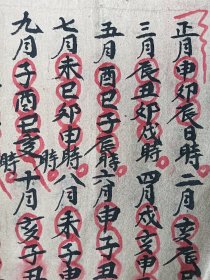 正月申卯辰日時二月亥辰日
三月辰丑戌時四月戌亥申
五月酉巳子辰時六月申子丑
七月未巳卯申時八月未子申
九月子酉巳亥時十月亥子丑